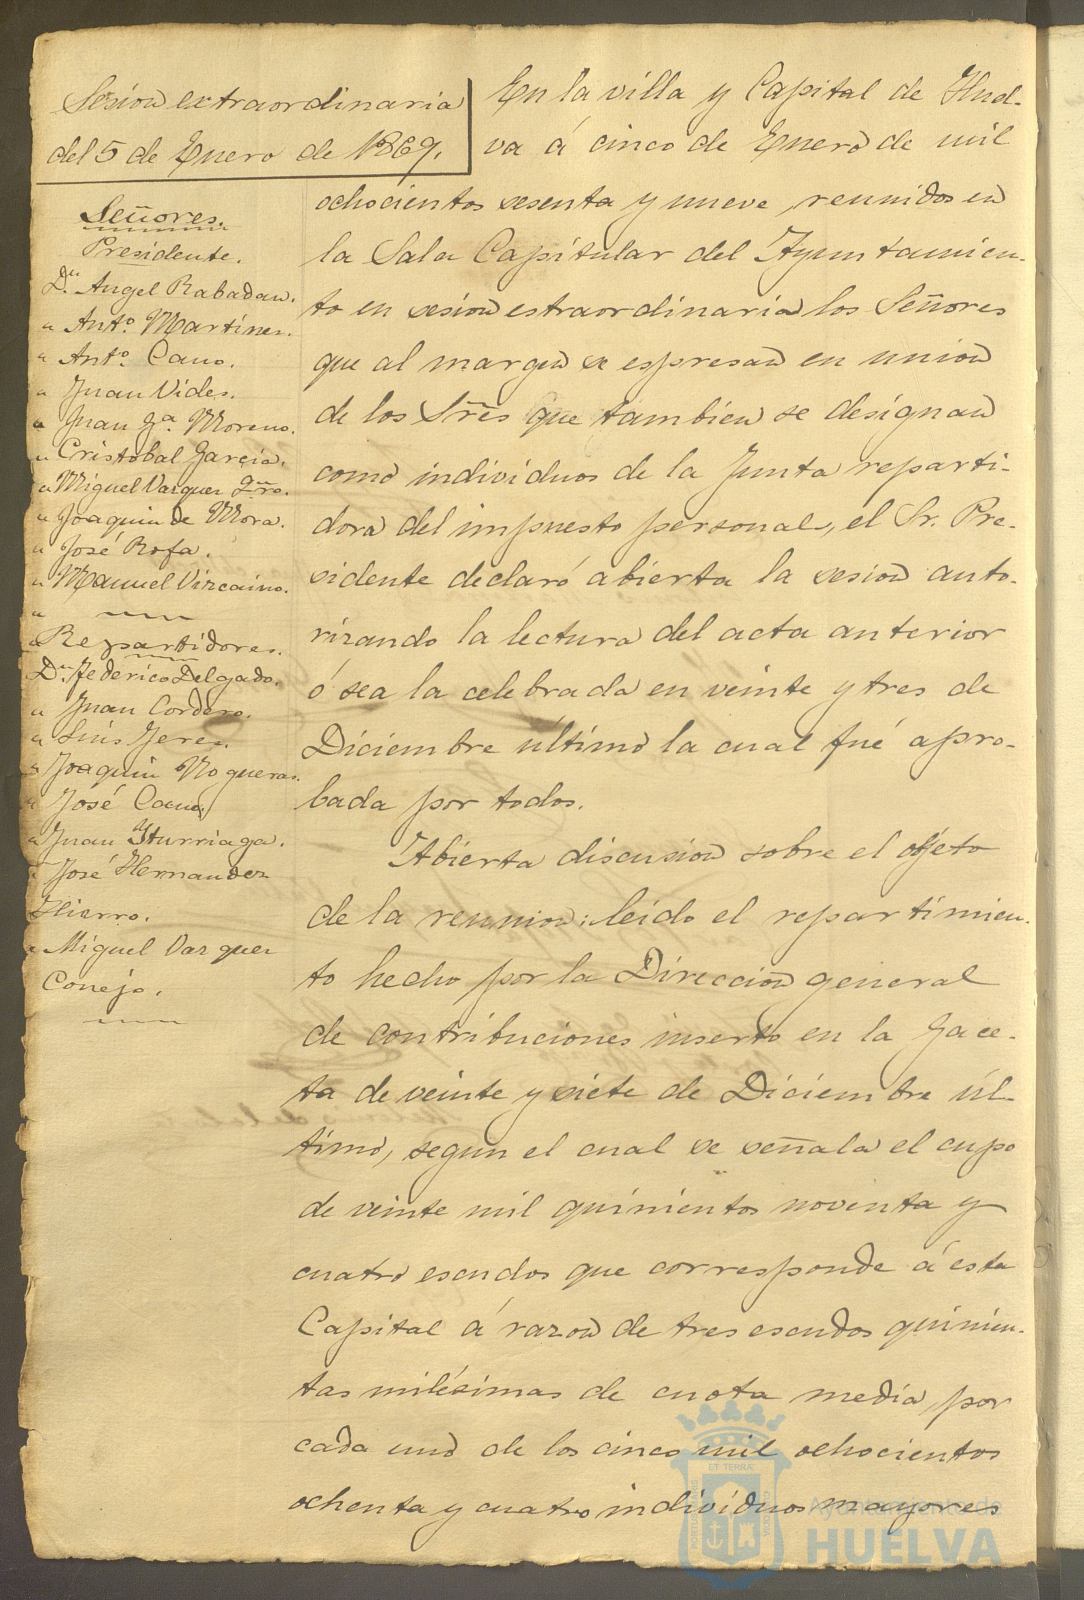 Sesion extraordinaria
del 5 de Enero de 1869.
Señores.
Presidente.
Dn. Angel Rabadan.
" Anto. Martinez.
" Anto. Cano.
" Juan Vides.
" Juan Ga. Moreno.
" Cristobal Garcia.
" Miguel Vazquez
" Joaquin de Mora.
" José Rofa.
" Manuel Vizcaino.
"
Repartidores.
Dn. Federico Delgado.
" Juan Cordero.
" Luis Jerez.
" Joaquin Nogueras.
" José Cano.
" Juan Yturriaga.
" José Hernandez
Hierro.
" Miguel Vazquez
Conejo.
En la villa y Capital de Huel-
va á cinco de Enero de mil
ochocientos sesenta y nueve, reunidos en
la Sala Capitular del Ayuntamien-
to en sesion estraordinaria los Señores
que al margen se espresan en union
de los Sres que tambien se designan
como individuos de la Junta reparti-
dora del impuesto personal, el Sr. Pre-
sidente declaró abierta la sesion auto-
rizando la lectura del acta anterior
ó sea la celebrada en veinte y tres de
Diciembre último la cual fué apro-
bada por todos.
Abierta discusion sobre el objeto
de la reunion; leido el repartimien-
to hecho por la Direccion general
de contribuciones inserto en la Gace-
ta de veinte y siete de Diciembre úl-
timo, segun el cual se señala el cupo
de veinte mil quinientos noventa y
cuatro escudos que corresponde á esta
Capital á razon de tres escudos quinien-
tas milésimas de cuota media por
cada uno de los cinco mil ochocientos
ochenta y cuatro individuos mayores
ET TERRÆ
Ayuntamiento de
HUELVA